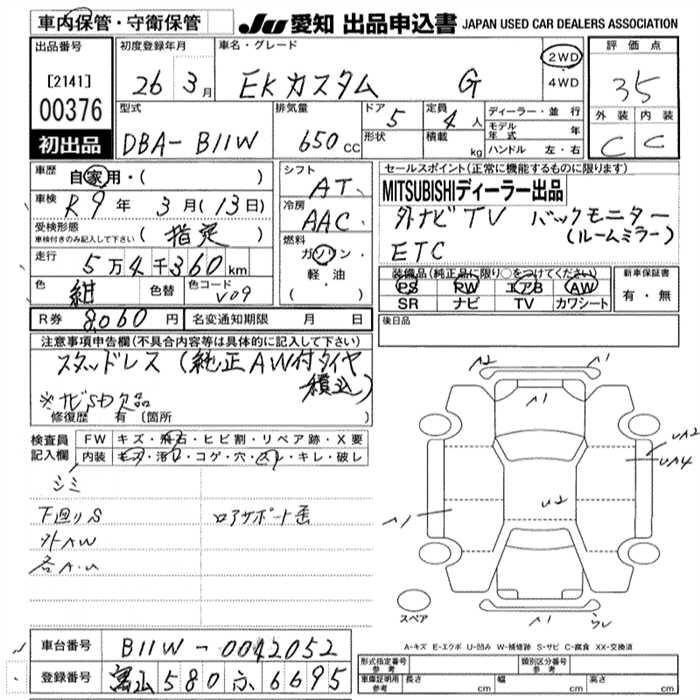 車内保管・守衛保管
JU 愛知 出品申込書 JAPAN USED CAR DEALERS ASSOCIATION
出品番号
[2141]
00376
初出品
初度登録年月
26 3月
車名・グレード
EKカスタム G
2WD
4WD
評価点
35
外装 内装
C C
型式
DBA-B11W
排気量
650 cc
ドア 5
形状
定員 4人
積載 kg
ディーラー・並行
モデル年式 年
ハンドル 左・右
車歴 自家用・( )
車検 R9年 3月(13日)
受検形態
車検付きのみ記入して下さい (指定)
走行
5万4千360km
色 紺 色替 色コード V09
R券 8,060円 名変通知期限 月 日
シフト
AT
冷房
AAC
燃料
ガソリン・
軽油・
( )
セールスポイント(正常に機能するものに限ります)
MITSUBISHIディーラー出品
外ナビ TV バックモニター
(ルームミラー)
ETC
装備品(純正品に限り○をつけてください)
PS PW エアB AW
SR ナビ TV カワシート
新車保証書
有・無
後日品
注意事項申告欄(不具合内容等は具体的に記入して下さい)
スタッドレス(純正AW付タイヤ
積込)
※ナビSD欠品
修復歴 有 〔箇所
検査員
記入欄
FW キズ・飛石・ヒビ割・リペア跡・X要
内装 キズ・汚れ・コゲ・穴・スレ・キレ・破レ
シミ
下回りS
外AW
各A.U
ロアサポート歪
A2 A1
A1
UA2
UA4
U2
A1
A1
スペア
A-キズ E-エクボ U-凹み W-補修跡 S-サビ C-腐食 XX-交換済
車台番号 B11W-0042052
登録番号 富山 580 ふ 6695
形式指定番号
参考
類別区分番号
参考
車庫証明用
参考
長さ cm 幅 cm 高さ cm